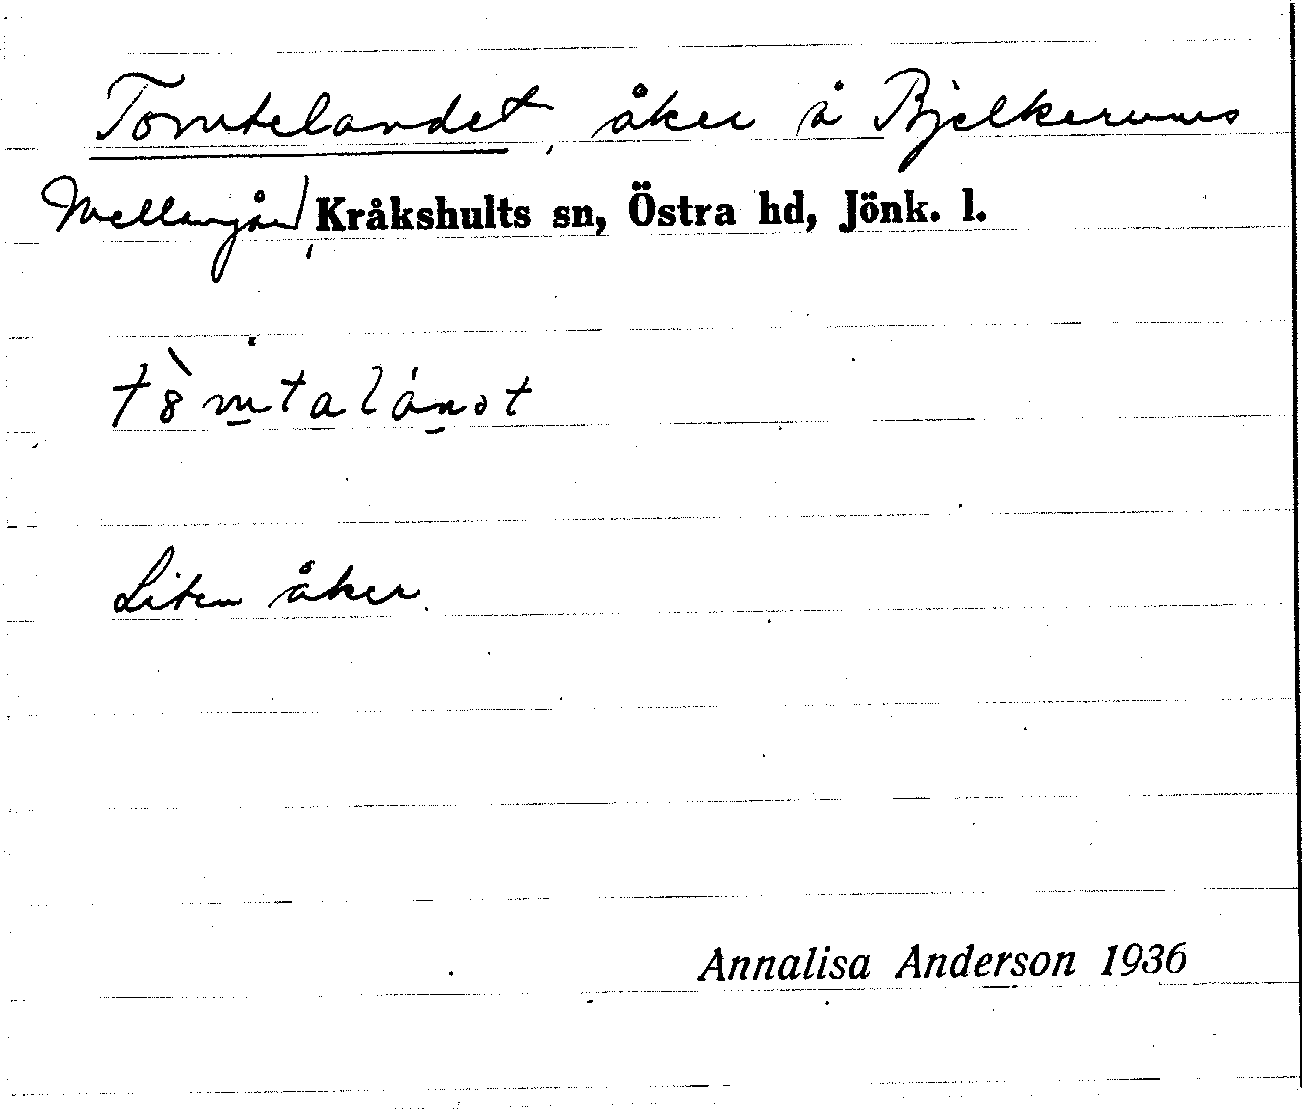 Tomtelandet, åker å Bjelkerums
Mellangård, Kråkshults sn, Östra hd, Jönk. l.
Liten åker.
Annalisa Anderson 1936